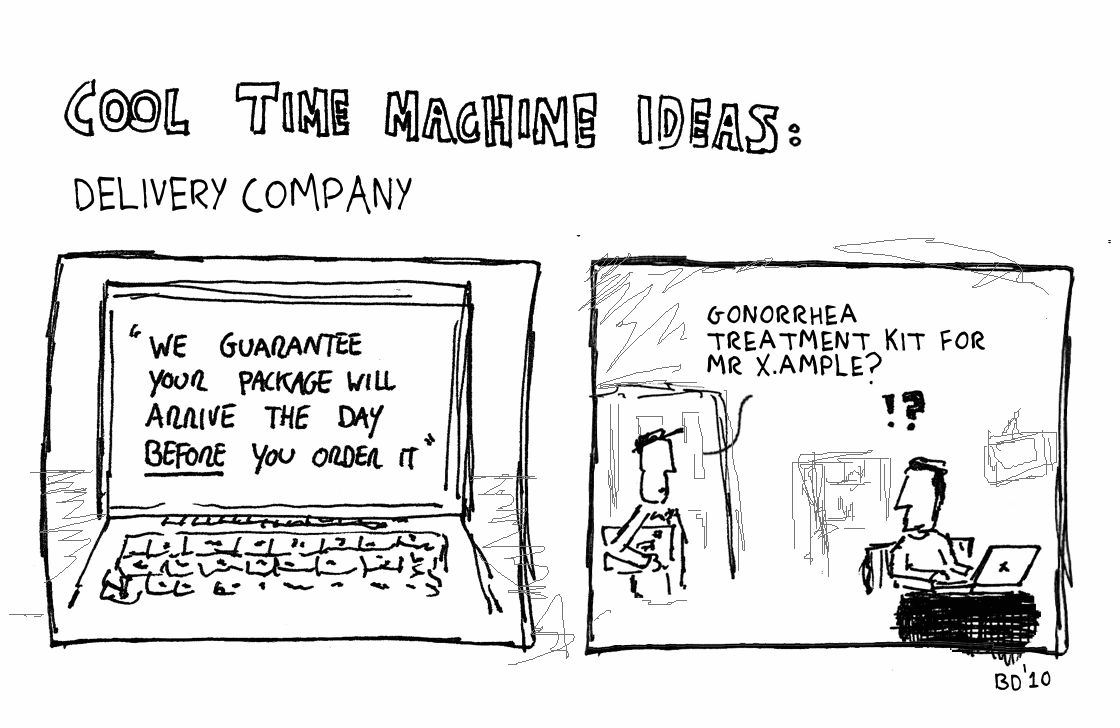 COOL TIME MACHINE IDEAS:
DELIVERY COMPANY
"WE GUARANTEE
YOUR PACKAGE WILL
ARRIVE THE DAY
BEFORE YOU ORDER IT"
GONORRHEA
TREATMENT KIT FOR
MR X.AMPLE?
!?
X
BD'10